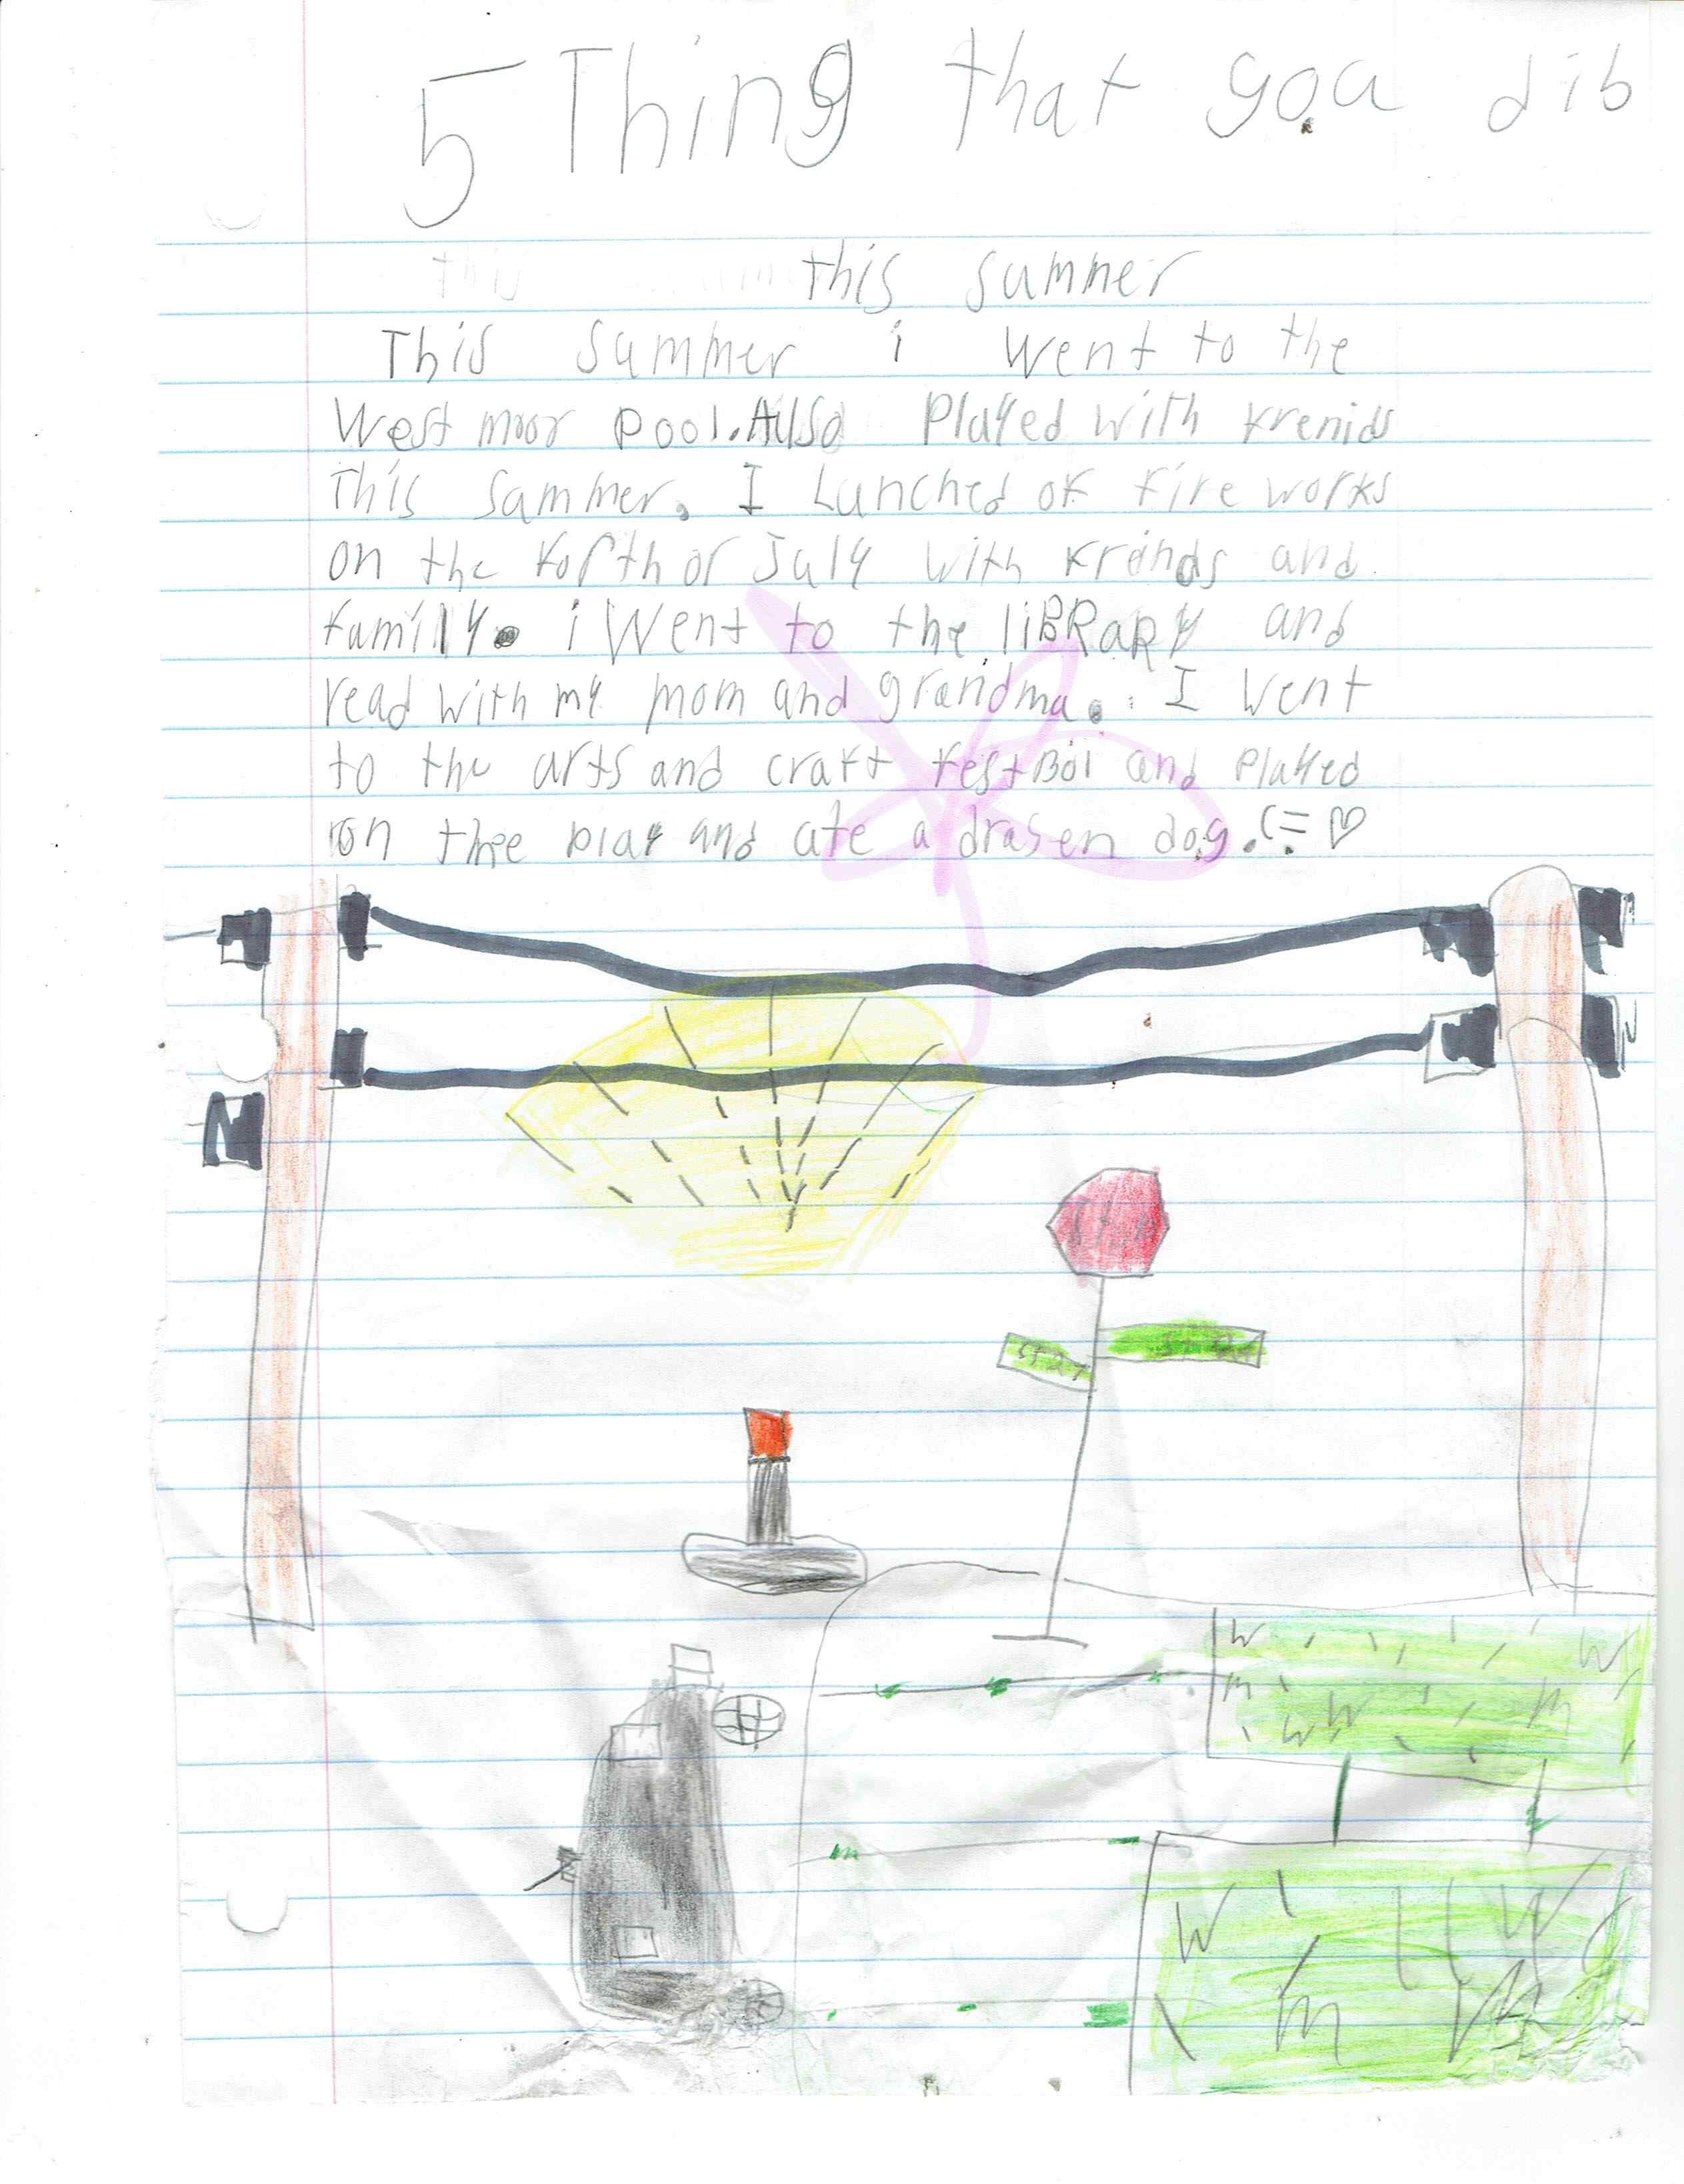 5 Thing that you dib
this summer
This summer i went to the
West moor Pool. Allso Played with frenids
This summer. I Lunched of fire works
on the forth of July with frinds and
family. i Went to the liBRaRy and
read with my mom and grandma. I went
to the arts and craft festBol and Played
on thee play and ate a drasen dog. (= ♡
Stop